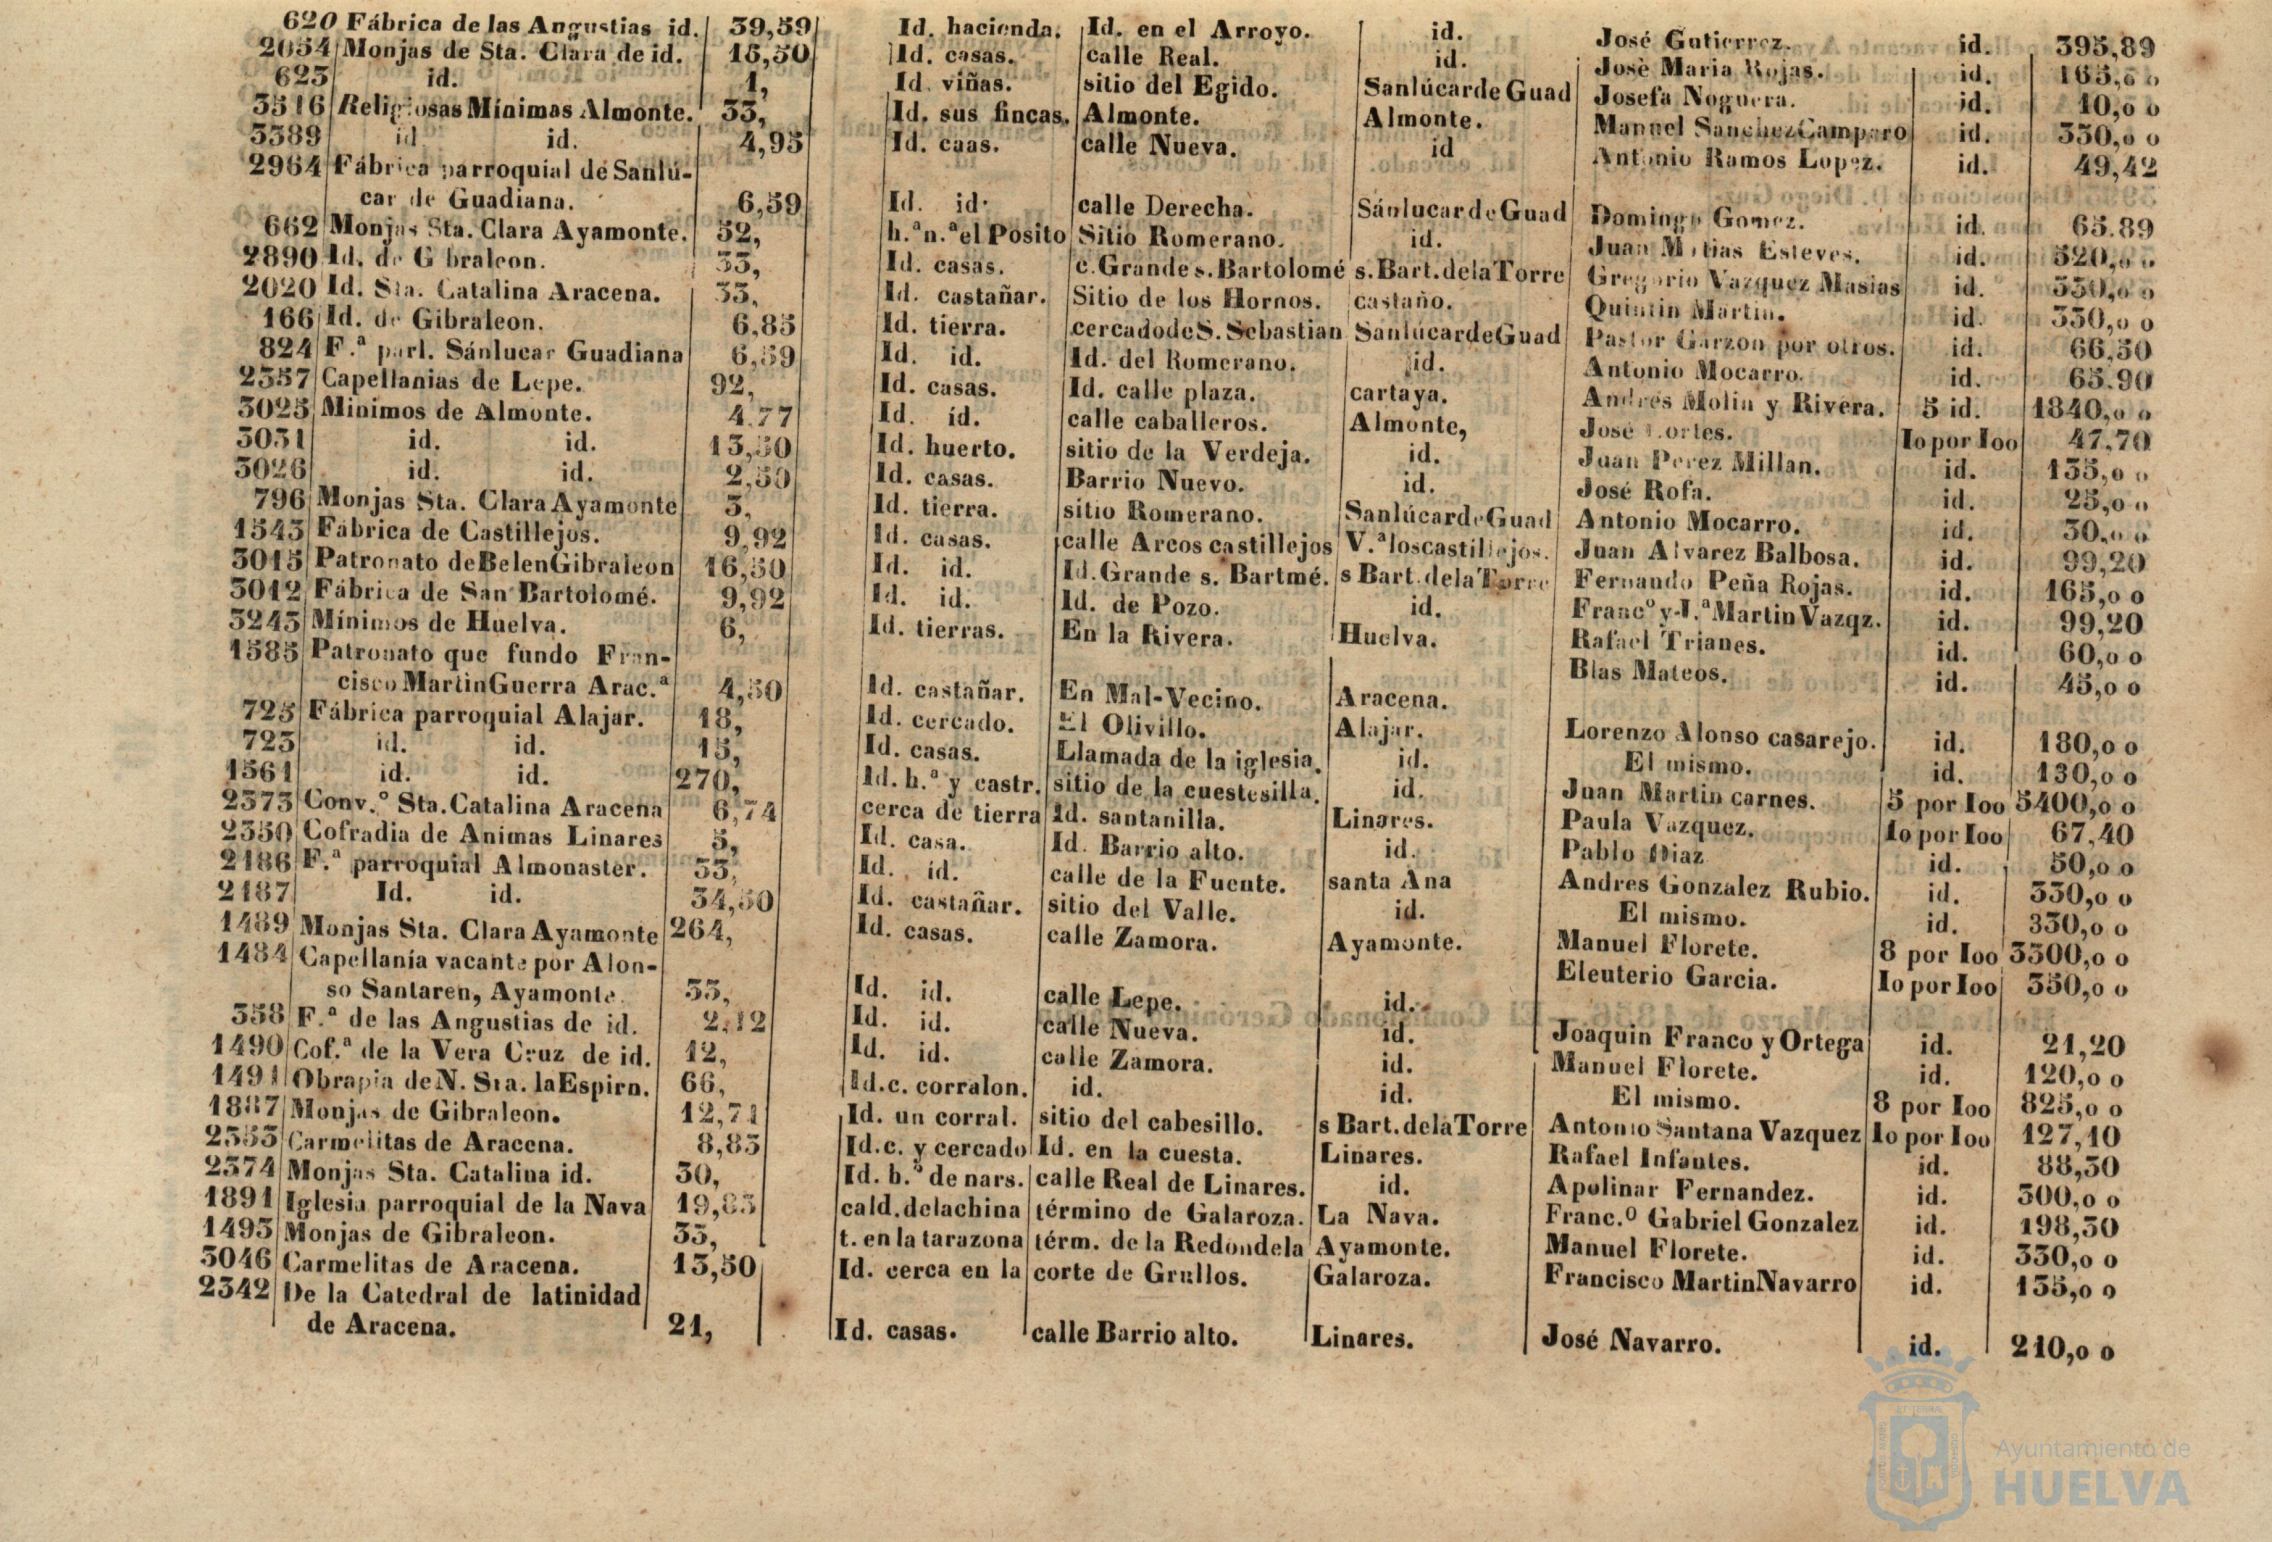 620 Fábrica de las Angustias id. 39,59 Id. hacienda. Id. en el Arroyo. id. José Gutierrez. id. 395,89
2654 Monjas de Sta. Clara de id. 16,50 Id. casas. calle Real. id. José Maria Rojas. id. 165,o o
623 id. 1, Id. viñas. sitio del Egido. Sanlúcar de Guad Josefa Noguera. id. 10,o o
3516 Religiosas Mínimas Almonte. 33, Id. sus fincas. Almonte. Almonte. Manuel Sanchez Camparo id. 330,o o
3389 id id. 4,95 Id. caas. calle Nueva. id Antonio Ramos Lopez. id. 49,42
2964 Fábrica parroquial de Sanlú-
car de Guadiana. 6,59 Id. id. calle Derecha. Sánlucar de Guad Domingo Gomez. id. 65.89
662 Monjas Sta. Clara Ayamonte. 52, h.ª n.ª el Posito Sitio Romerano. id. Juan Matias Esteves. id. 520,o o
2890 Id. de Gibraleon. 33, Id. casas. c. Grande s. Bartolomé s. Bart. de la Torre Gregorio Vazquez Masias id. 330,o o
2020 Id. Sta. Catalina Aracena. 33, Id. castañar. Sitio de los Hornos. castaño. Quintin Martin. id. 330,o o
166 Id. de Gibraleon. 6,85 Id. tierra. cercado de S. Sebastian Sanlúcar de Guad Pastor Garzon por otros. id. 66,50
824 F.ª parl. Sánlucar Guadiana 6,59 Id. id. Id. del Romerano. id. Antonio Mocarro. id. 65.90
2357 Capellanias de Lepe. 92, Id. casas. Id. calle plaza. cartaya. Andres Molin y Rivera. 5 id. 1840,o o
3025 Minimos de Almonte. 4.77 Id. id. calle caballeros. Almonte, José Cortes. 1o por 1oo 47,70
3031 id. id. 13,50 Id. huerto. sitio de la Verdeja. id. Juan Perez Millan. id. 135,o o
3026 id. id. 2,50 Id. casas. Barrio Nuevo. id. José Rofa. id. 25,o o
796 Monjas Sta. Clara Ayamonte 3, Id. tierra. sitio Romerano. Sanlúcar de Guad Antonio Mocarro. id. 30,o o
1543 Fábrica de Castillejos. 9,92 Id. casas. calle Arcos castillejos V.ª los castillejos. Juan Alvarez Balbosa. id. 99,20
3015 Patronato de Belen Gibraleon 16,50 Id. id. Id. Grande s. Bartmé. s Bart. de la Torre Fernando Peña Rojas. id. 165,o o
3012 Fábrica de San Bartolomé. 9,92 Id. id. Id. de Pozo. id. Francº y J.ª Martin Vazqz. id. 99,20
3243 Mínimos de Huelva. 6, Id. tierras. En la Rivera. Huelva. Rafael Trianes. id. 60,o o
1585 Patronato que fundo Fran-
cisco Martin Guerra Arac.ª 4,50 Id. castañar. En Mal-Vecino. Aracena. Blas Mateos. id. 45,o o
725 Fábrica parroquial Alajar. 18, Id. cercado. El Olivillo. Alajar. Lorenzo Alonso casarejo. id. 180,o o
723 id. id. 15, Id. casas. Llamada de la iglesia. id. El mismo. id. 130,o o
1561 id. id. 270, Id. h.ª y castr. sitio de la cuestesilla. id. Juan Martin carnes. 5 por 1oo 5400,o o
2373 Conv.º Sta. Catalina Aracena 6,74 cerca de tierra Id. santanilla. Linares. Paula Vazquez. 1o por 1oo 67,40
2350 Cofradia de Animas Linares 5, Id. casa. Id. Barrio alto. id. Pablo Diaz id. 50,o o
2186 F.ª parroquial Almonaster. 33, Id. id. calle de la Fuente. santa Ana Andres Gonzalez Rubio. id. 330,o o
2187 Id. id. 34,50 Id. castañar. sitio del Valle. id. El mismo. id. 330,o o
1489 Monjas Sta. Clara Ayamonte 264, Id. casas. calle Zamora. Ayamonte. Manuel Florete. 8 por 1oo 3300,o o
1484 Capellanía vacante por Alon-
so Santaren, Ayamonte. 35, Id. id. calle Lepe. id. Eleuterio Garcia. 1o por 1oo 350,o o
358 F.ª de las Angustias de id. 2,12 Id. id. calle Nueva. id. Joaquin Franco y Ortega id. 21,20
1490 Cof.ª de la Vera Cruz de id. 12, Id. id. calle Zamora. id. Manuel Florete. id. 120,o o
1491 Obrapia de N. Sra. la Espirn. 66, Id. c. corralon. id. id. El mismo. 8 por 1oo 825,o o
1887 Monjas de Gibraleon. 12,71 Id. un corral. sitio del cabesillo. s Bart. de la Torre Antonio Santana Vazquez 1o por 1oo 127,10
2353 Carmelitas de Aracena. 8,83 Id. c. y cercado Id. en la cuesta. Linares. Rafael Infantes. id. 88,30
2374 Monjas Sta. Catalina id. 30, Id. b.º de nars. calle Real de Linares. id. Apolinar Fernandez. id. 300,o o
1891 Iglesia parroquial de la Nava 19,83 cald. de la china término de Galaroza. La Nava. Franc.º Gabriel Gonzalez id. 198,30
1493 Monjas de Gibraleon. 33, t. en la tarazona térm. de la Redondela Ayamonte. Manuel Florete. id. 330,o o
3046 Carmelitas de Aracena. 13,50 Id. cerca en la corte de Grullos. Galaroza. Francisco Martin Navarro id. 135,o o
2342 De la Catedral de latinidad
de Aracena. 21, Id. casas. calle Barrio alto. Linares. José Navarro. id. 210,o o
Ayuntamiento de
HUELVA